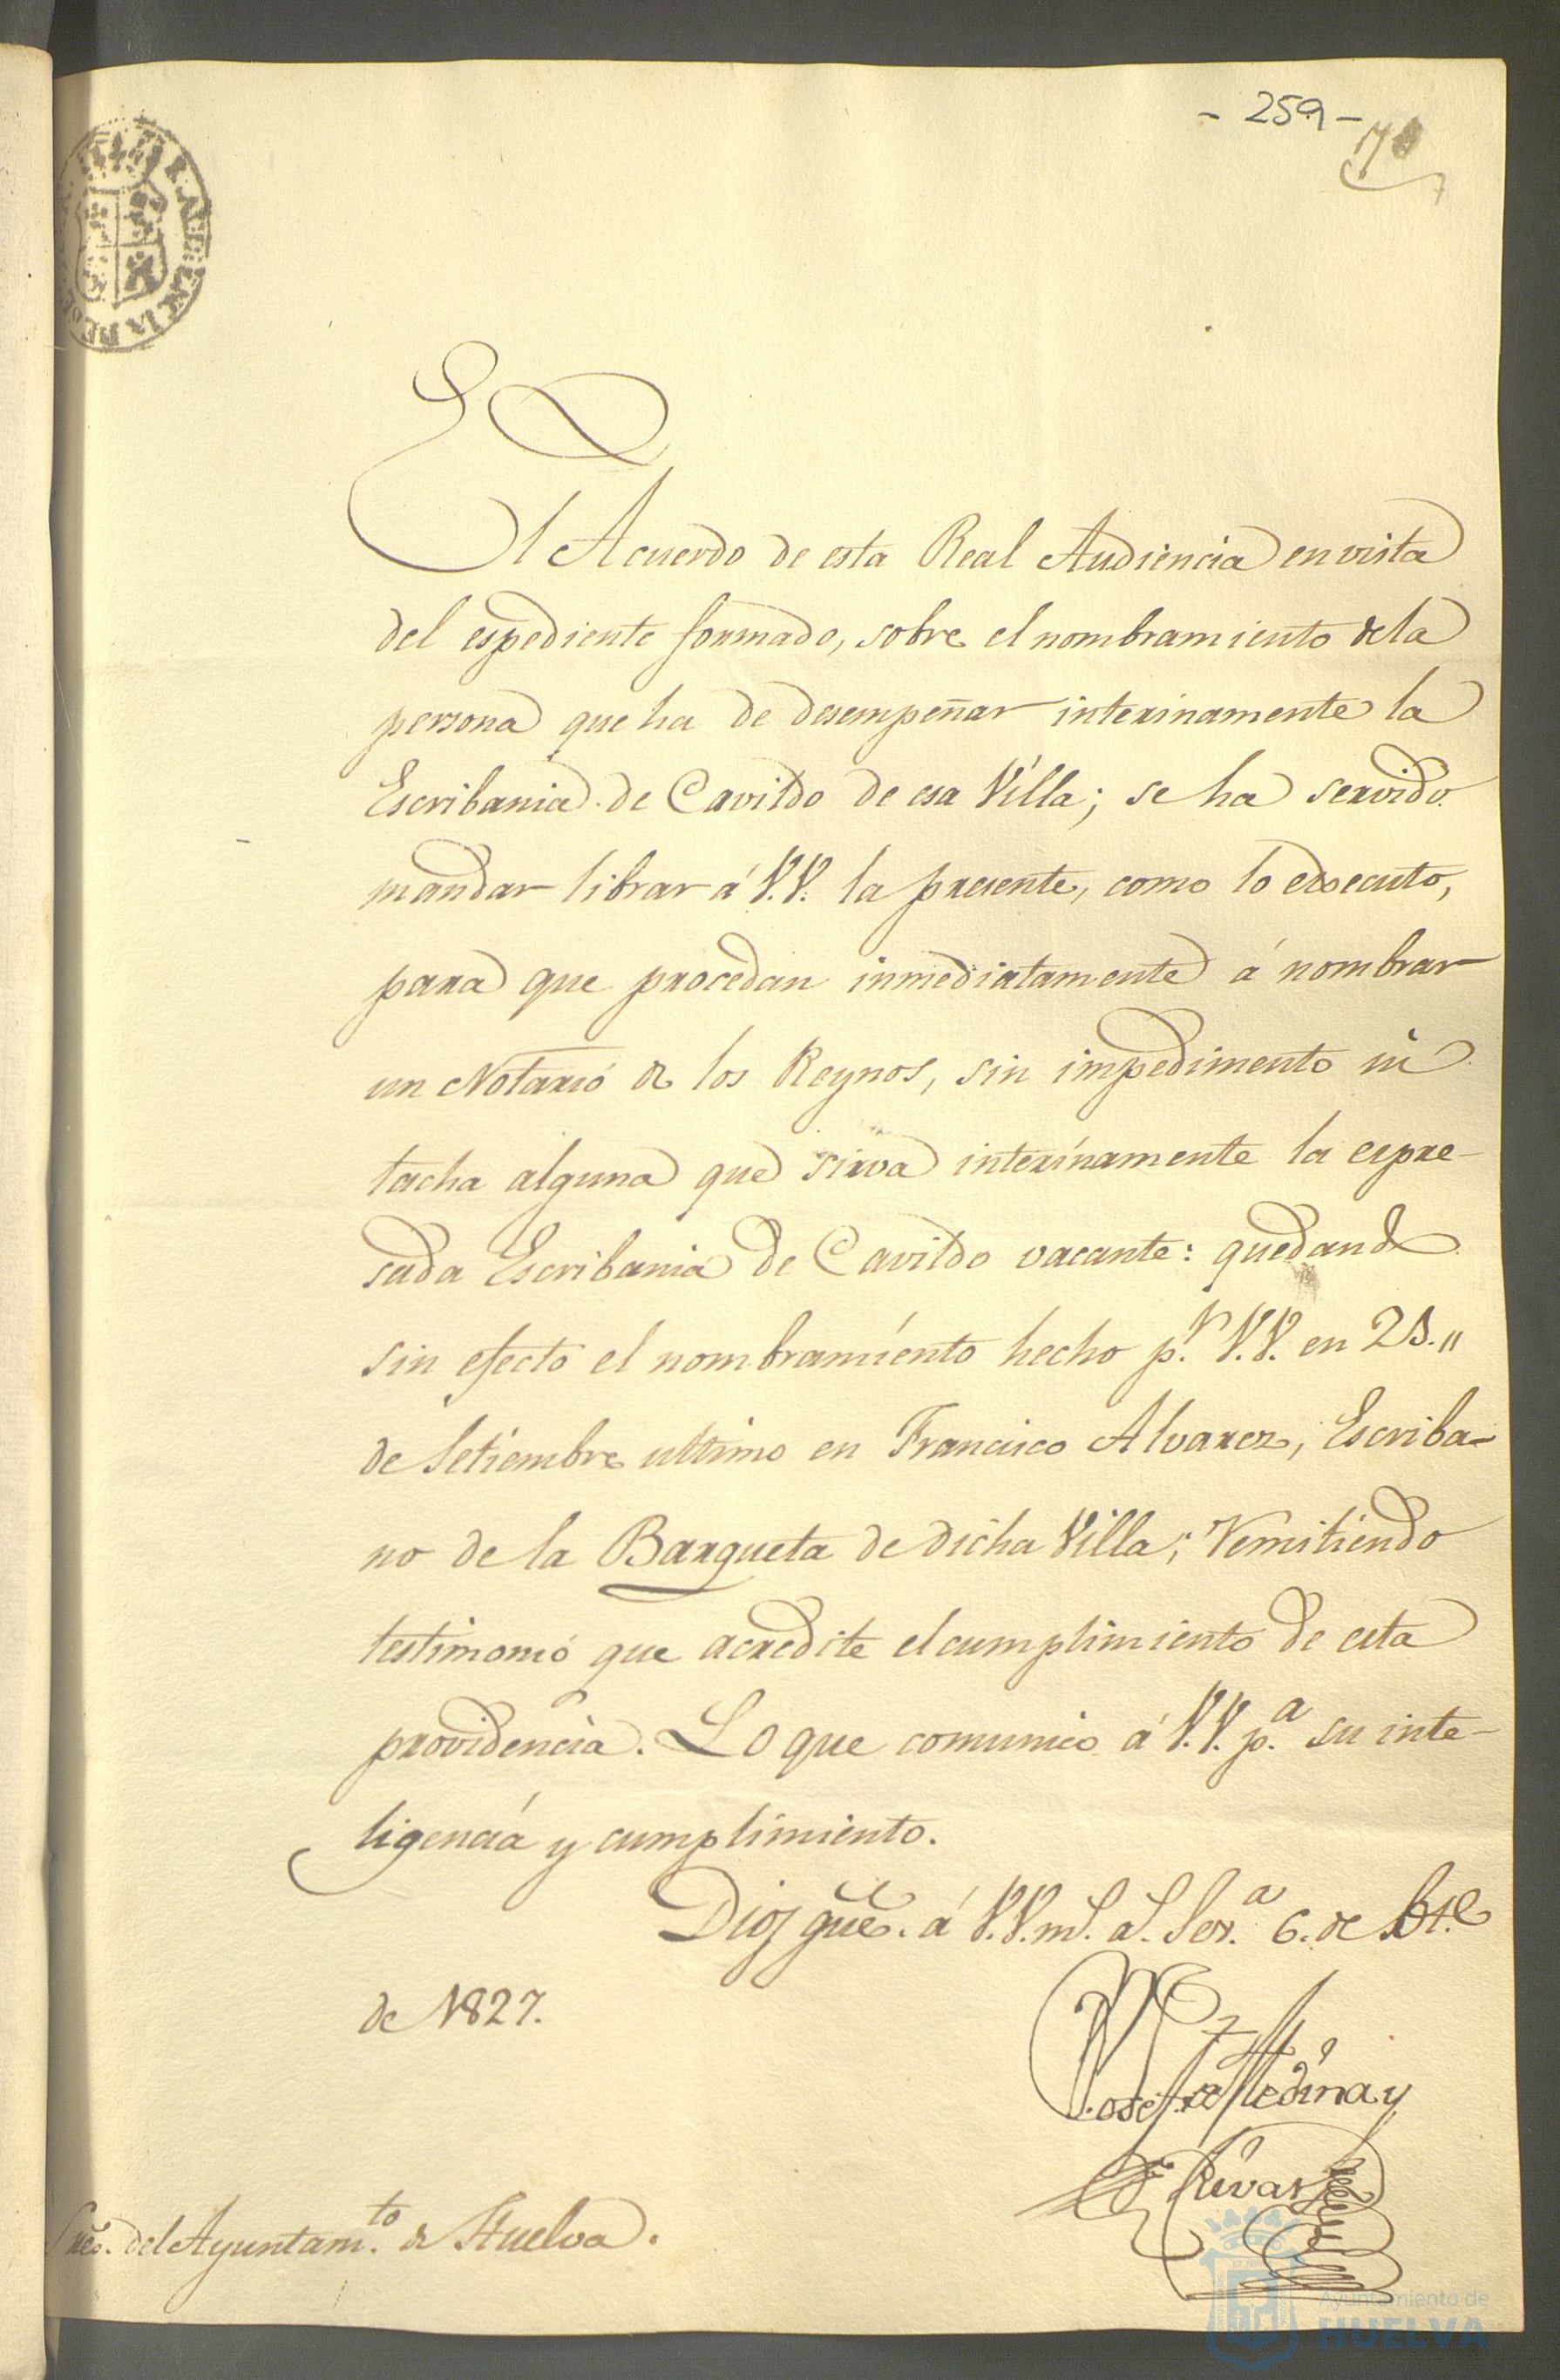 - 259 -
El Acuerdo de esta Real Audiencia en vista
del espediente formado, sobre el nombramiento de la
persona que ha de desempeñar interinamente la
Escribania de Cavildo de esa Villa; se ha servido
mandar librar á V.V. la presente, como lo executo,
para que procedan inmediatamente á nombrar
un Notario de los Reynos, sin impedimento ni
tacha alguna que sirva interinamente la espre-
sada Escribania de Cavildo vacante: quedando
sin efecto el nombramiento hecho p.r V.V. en
de Setiembre ultimo en Francisco Alvarez, Escriba-
no de la Barqueta de dicha Villa; Remitiendo
testimonio que acredite el cumplimiento de esta
providencia. Lo que comunico á V.V. p.a su inte-
ligencia y cumplimiento.
Dios gue. á V.V. m.s a.s Sev.a 6. de
de 1827.
Jose de Medina y
Rivas
Sres. del Ayuntam.to de Huelva.
Ayuntamiento de
HUELVA